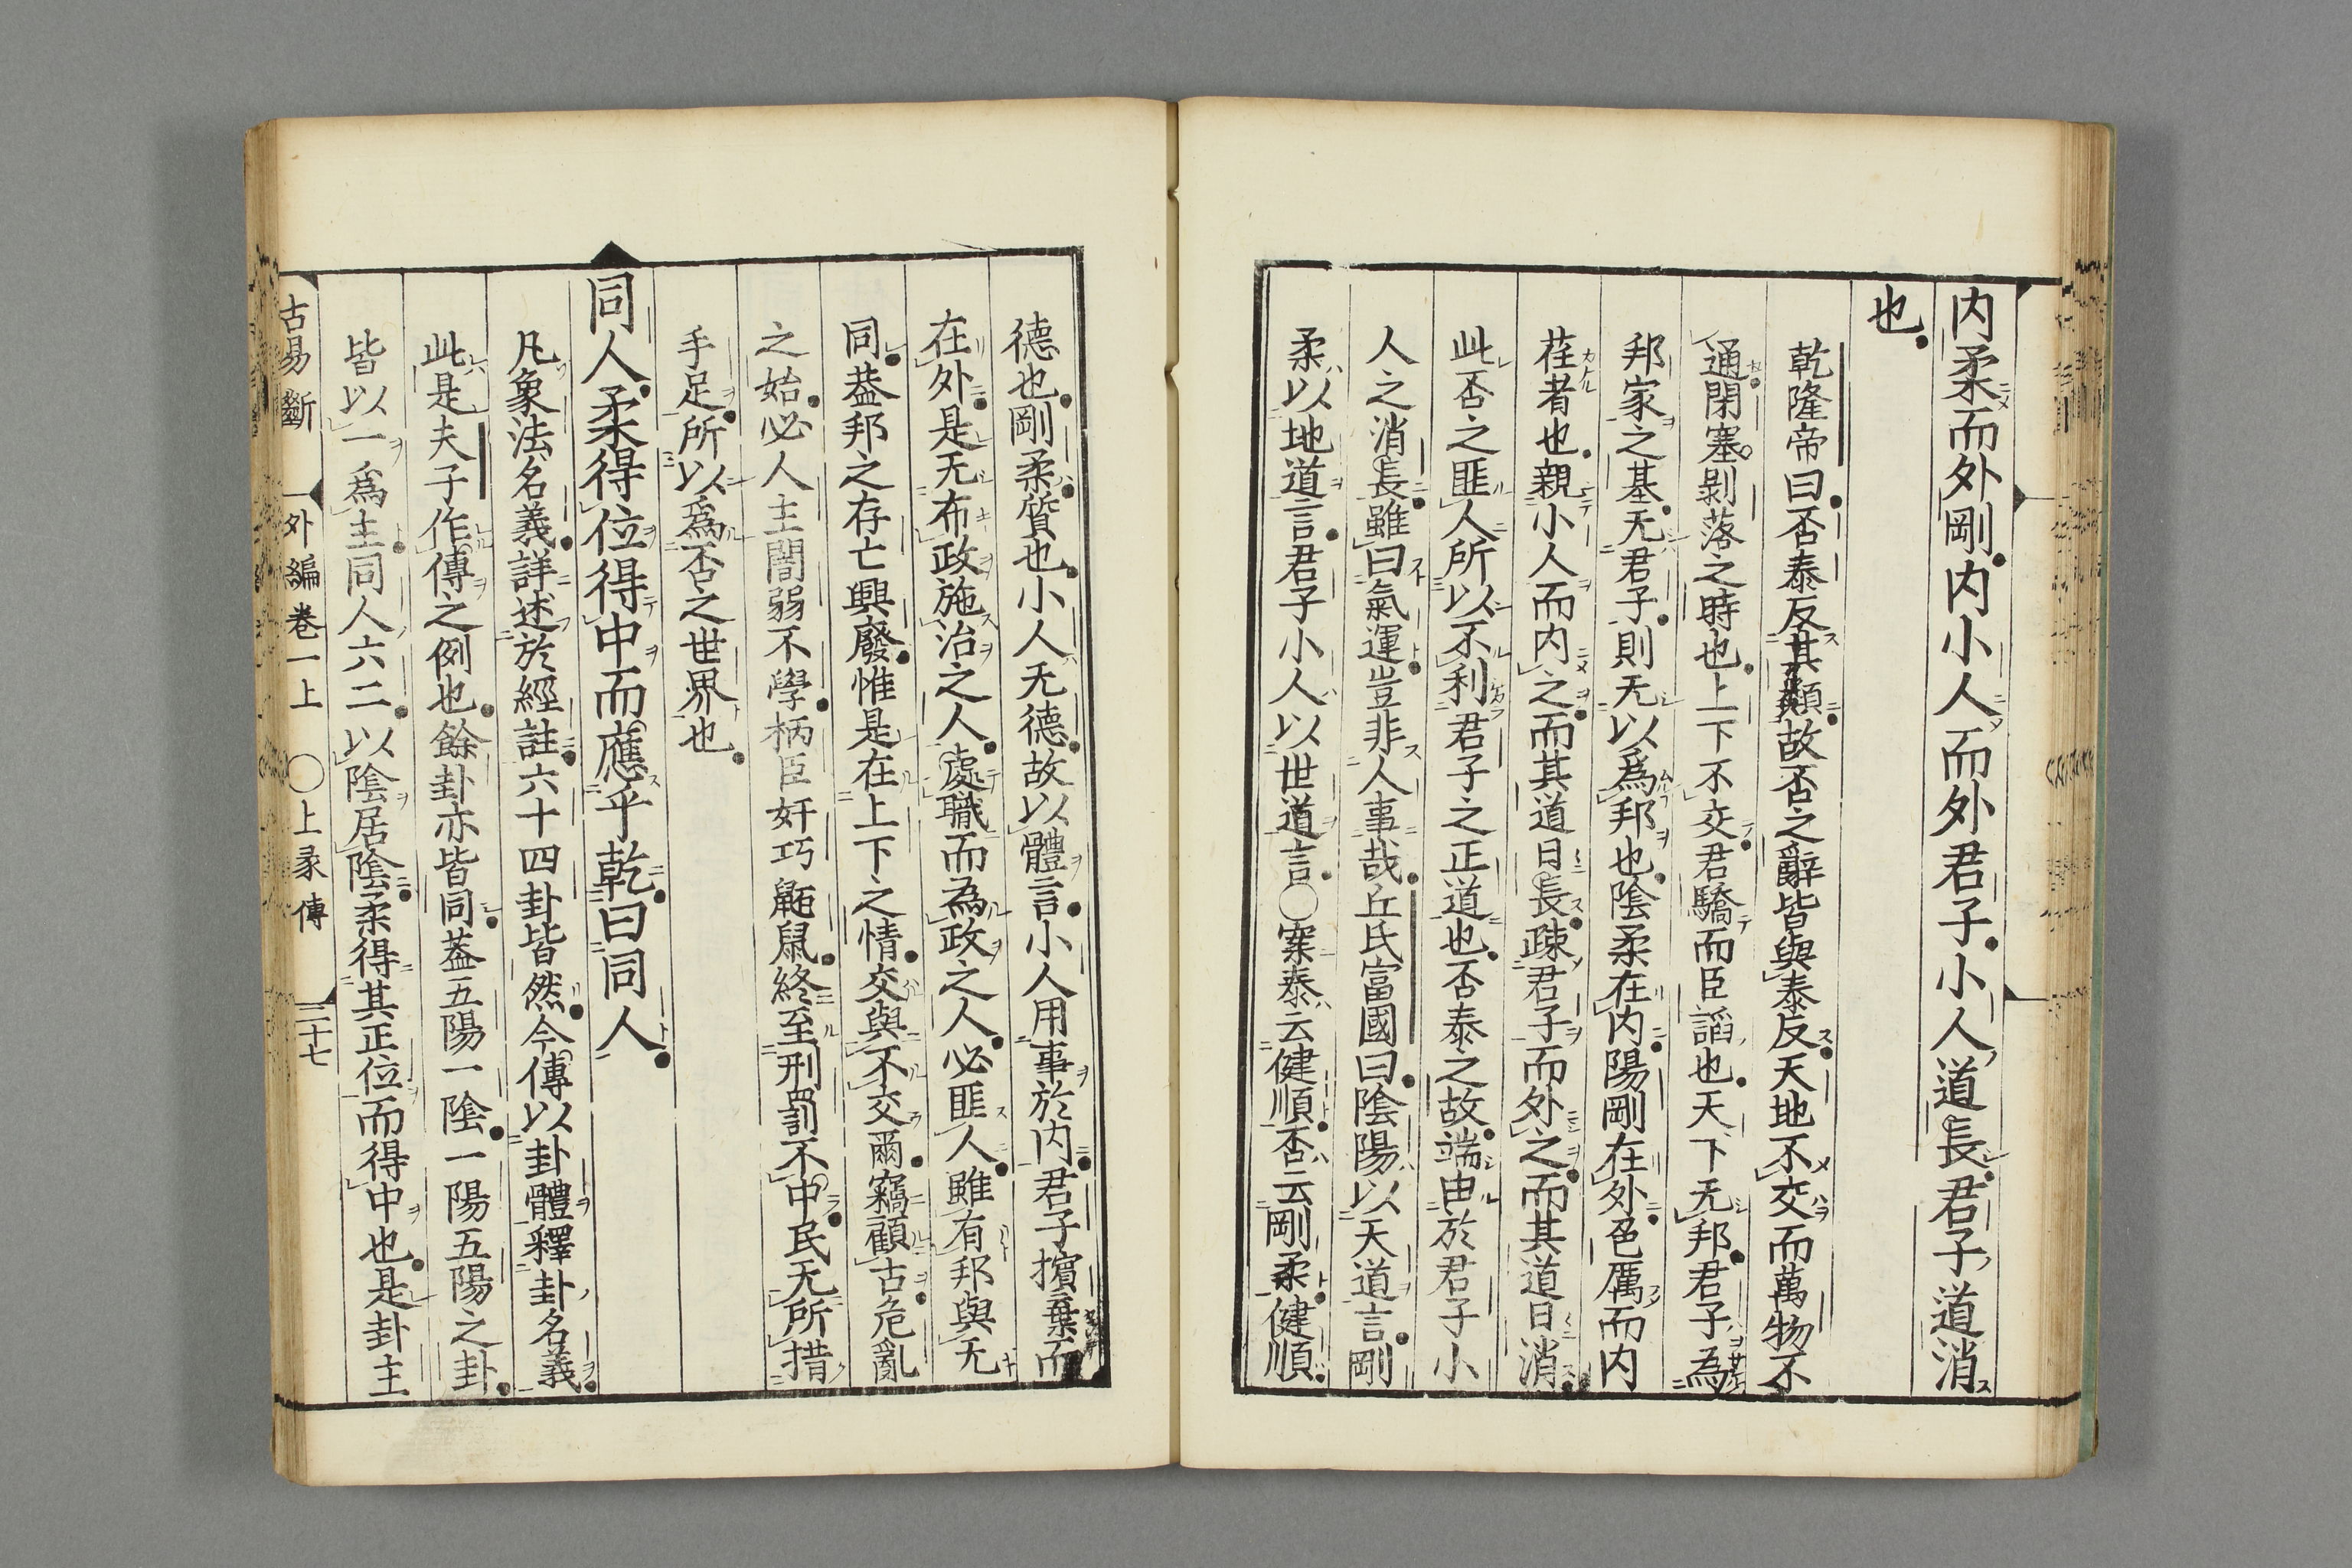 内柔而外剛内小人而外君子小人道長君子道消
也
乾隆帝曰否泰反其類故否之辭皆與泰反天地不交而萬物不
通閉塞剝落之時也上下不交君驕而臣謟也天下无邦君子為
邦家之基无君子則无以爲邦也陰柔在内陽剛在外色厲而内
荏者也親小人而内之而其道日長疎君子而外之而其道日消
此否之匪人所以不利君子之正道也否泰之故端由於君子小
人之消長雖曰氣運豈非人事哉丘氏富國曰陰陽以天道言剛
柔以地道言君子小人以世道言〇案泰云健順否云剛柔健順
德也剛柔質也小人无德故以體言小人用事於内君子擯棄而
在外是无布政施治之人處職而為政之人必匪人雖有邦與无
同葢邦之存亡興廢惟是在上下之情交與不交爾竊顧古危亂
之始必人主闇弱不學柄臣奸巧鼫鼠終至刑罰不中民无所措
手足所以爲否之世界也
同人柔得位得中而應乎乾曰同人
凡象法名義詳述於經註六十四卦皆然今傳以卦體釋卦名義
此是夫子作傳之例也餘卦亦皆同葢五陽一陰一陽五陽之卦
皆以一爲主同人六二以陰居陰柔得其正位而得中也是卦主
古易斷 外編卷一上 〇上彖傳 三十七